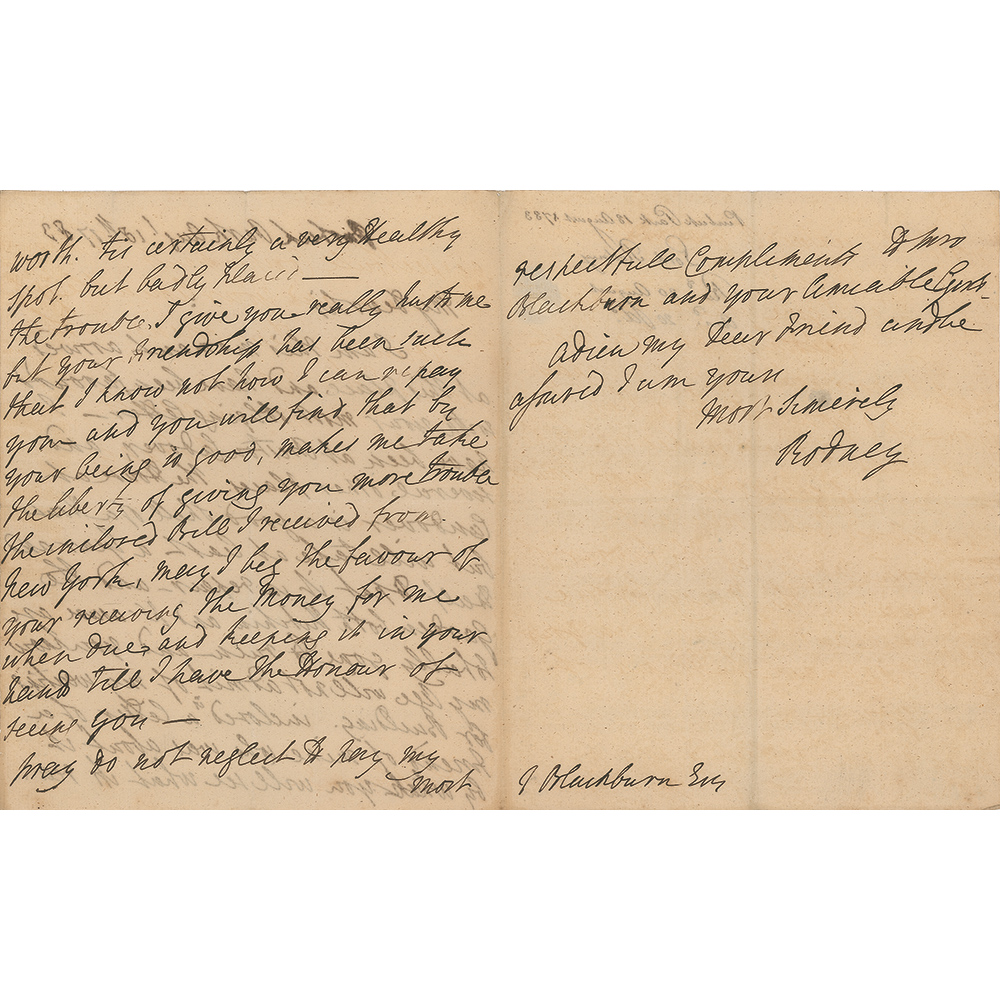 worth. tis certainly a very Healthy
spot. but badly placed —
the trouble, I give you really hurts me
but your friendship has been such
that I know not how I can repay
you — and you will find, that by
your being so good, makes me take
the liberty of giving you more trouble
the inclosed Bill I received from
New York, may I beg the favour of
your receiving the Money for me
when due, and keeping it in your
hands till I have the Honour of
seeing you —
pray do not neglect to pay my
most
respectfull Compliments to Mrs
Blackburn and your Amiable Girls
adieu my Dear Friend and be
assured I am yours
Most Sincerely
Rodney
J Blackburn Esq